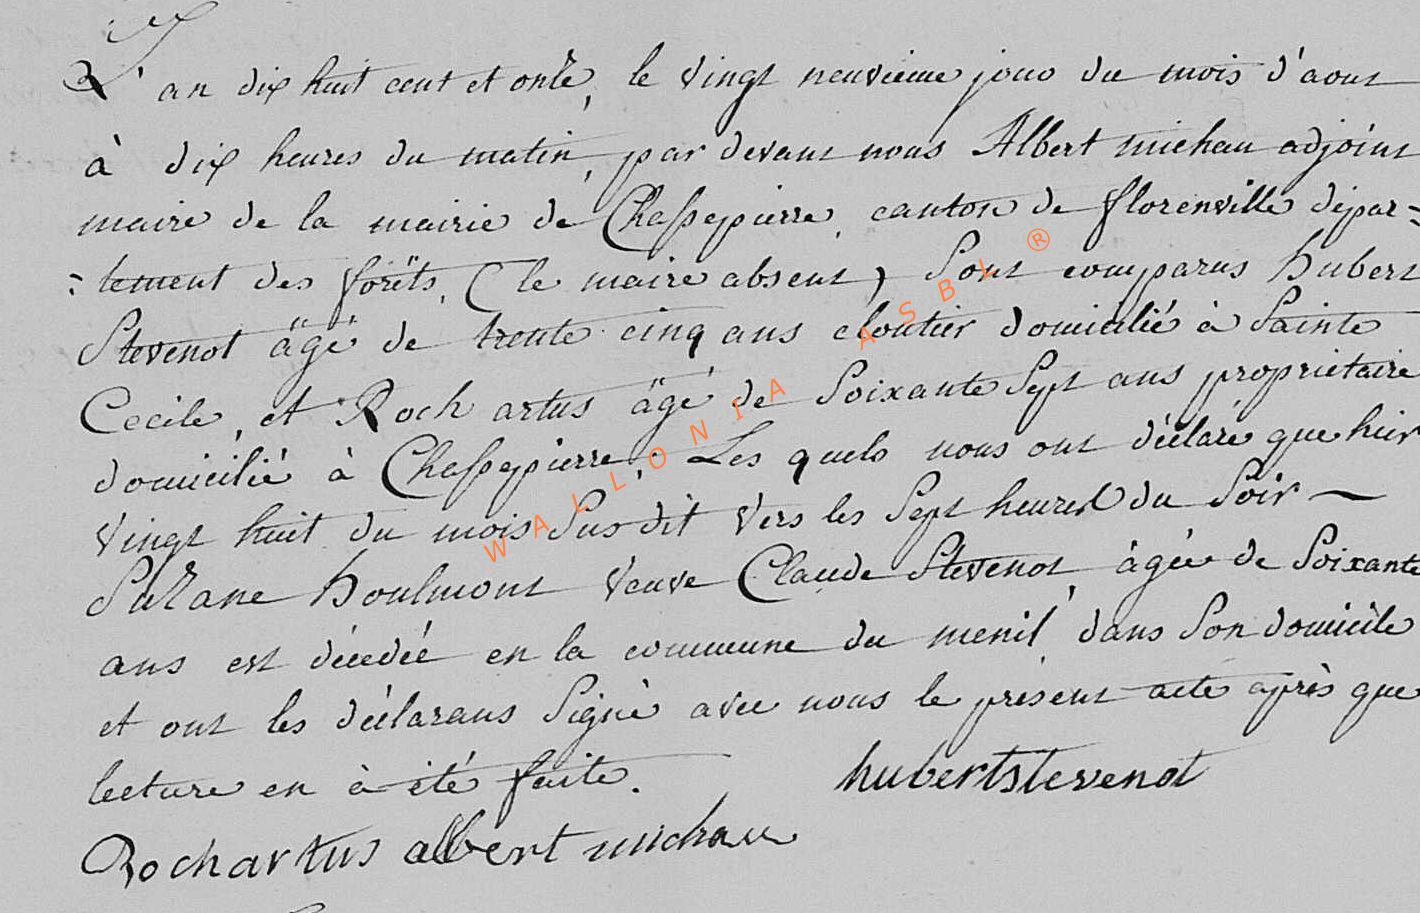 L'an dix huit cent et onze, le vingt neuvieme jour du mois d'aout
à dix heures du matin, par devant nous Albert michau adjoint
maire de la mairie de Chassepierre, canton de florenville dépar-
-tement des forêts, (le maire absent) Sont comparus hubert
Stevenot âgé de trente cinq ans cloutier domicilié à Sainte
Cecile, et Roch artus âgé de Soixante Sept ans propriétaire
domicilié à Chassepierre, Les quels nous ont déclaré que hier
vingt huit du mois Sus dit vers les Sept heures du Soir
Suzane houlmont veuve Claude Stevenot, âgée de Soixante
ans est décedée en la commune du menil, dans Son domicile
et ont les déclarans Signé avec nous le présent acte après que
lecture en à été faite.
hubert stevenot
Roch artus albert michau
WALLONIA ASBL ®